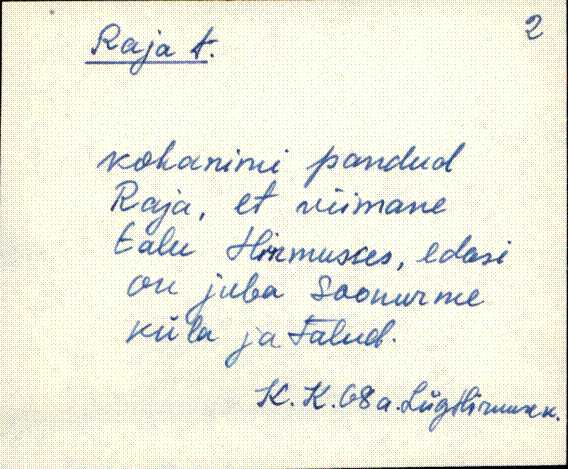 2
Raja t.
kohanimi pandud
Raja, et viimane
talu Hirmuses, edasi
on juba Soonurme
küla ja talud.
K. K. 68 a. Lüg Hirmuse k.